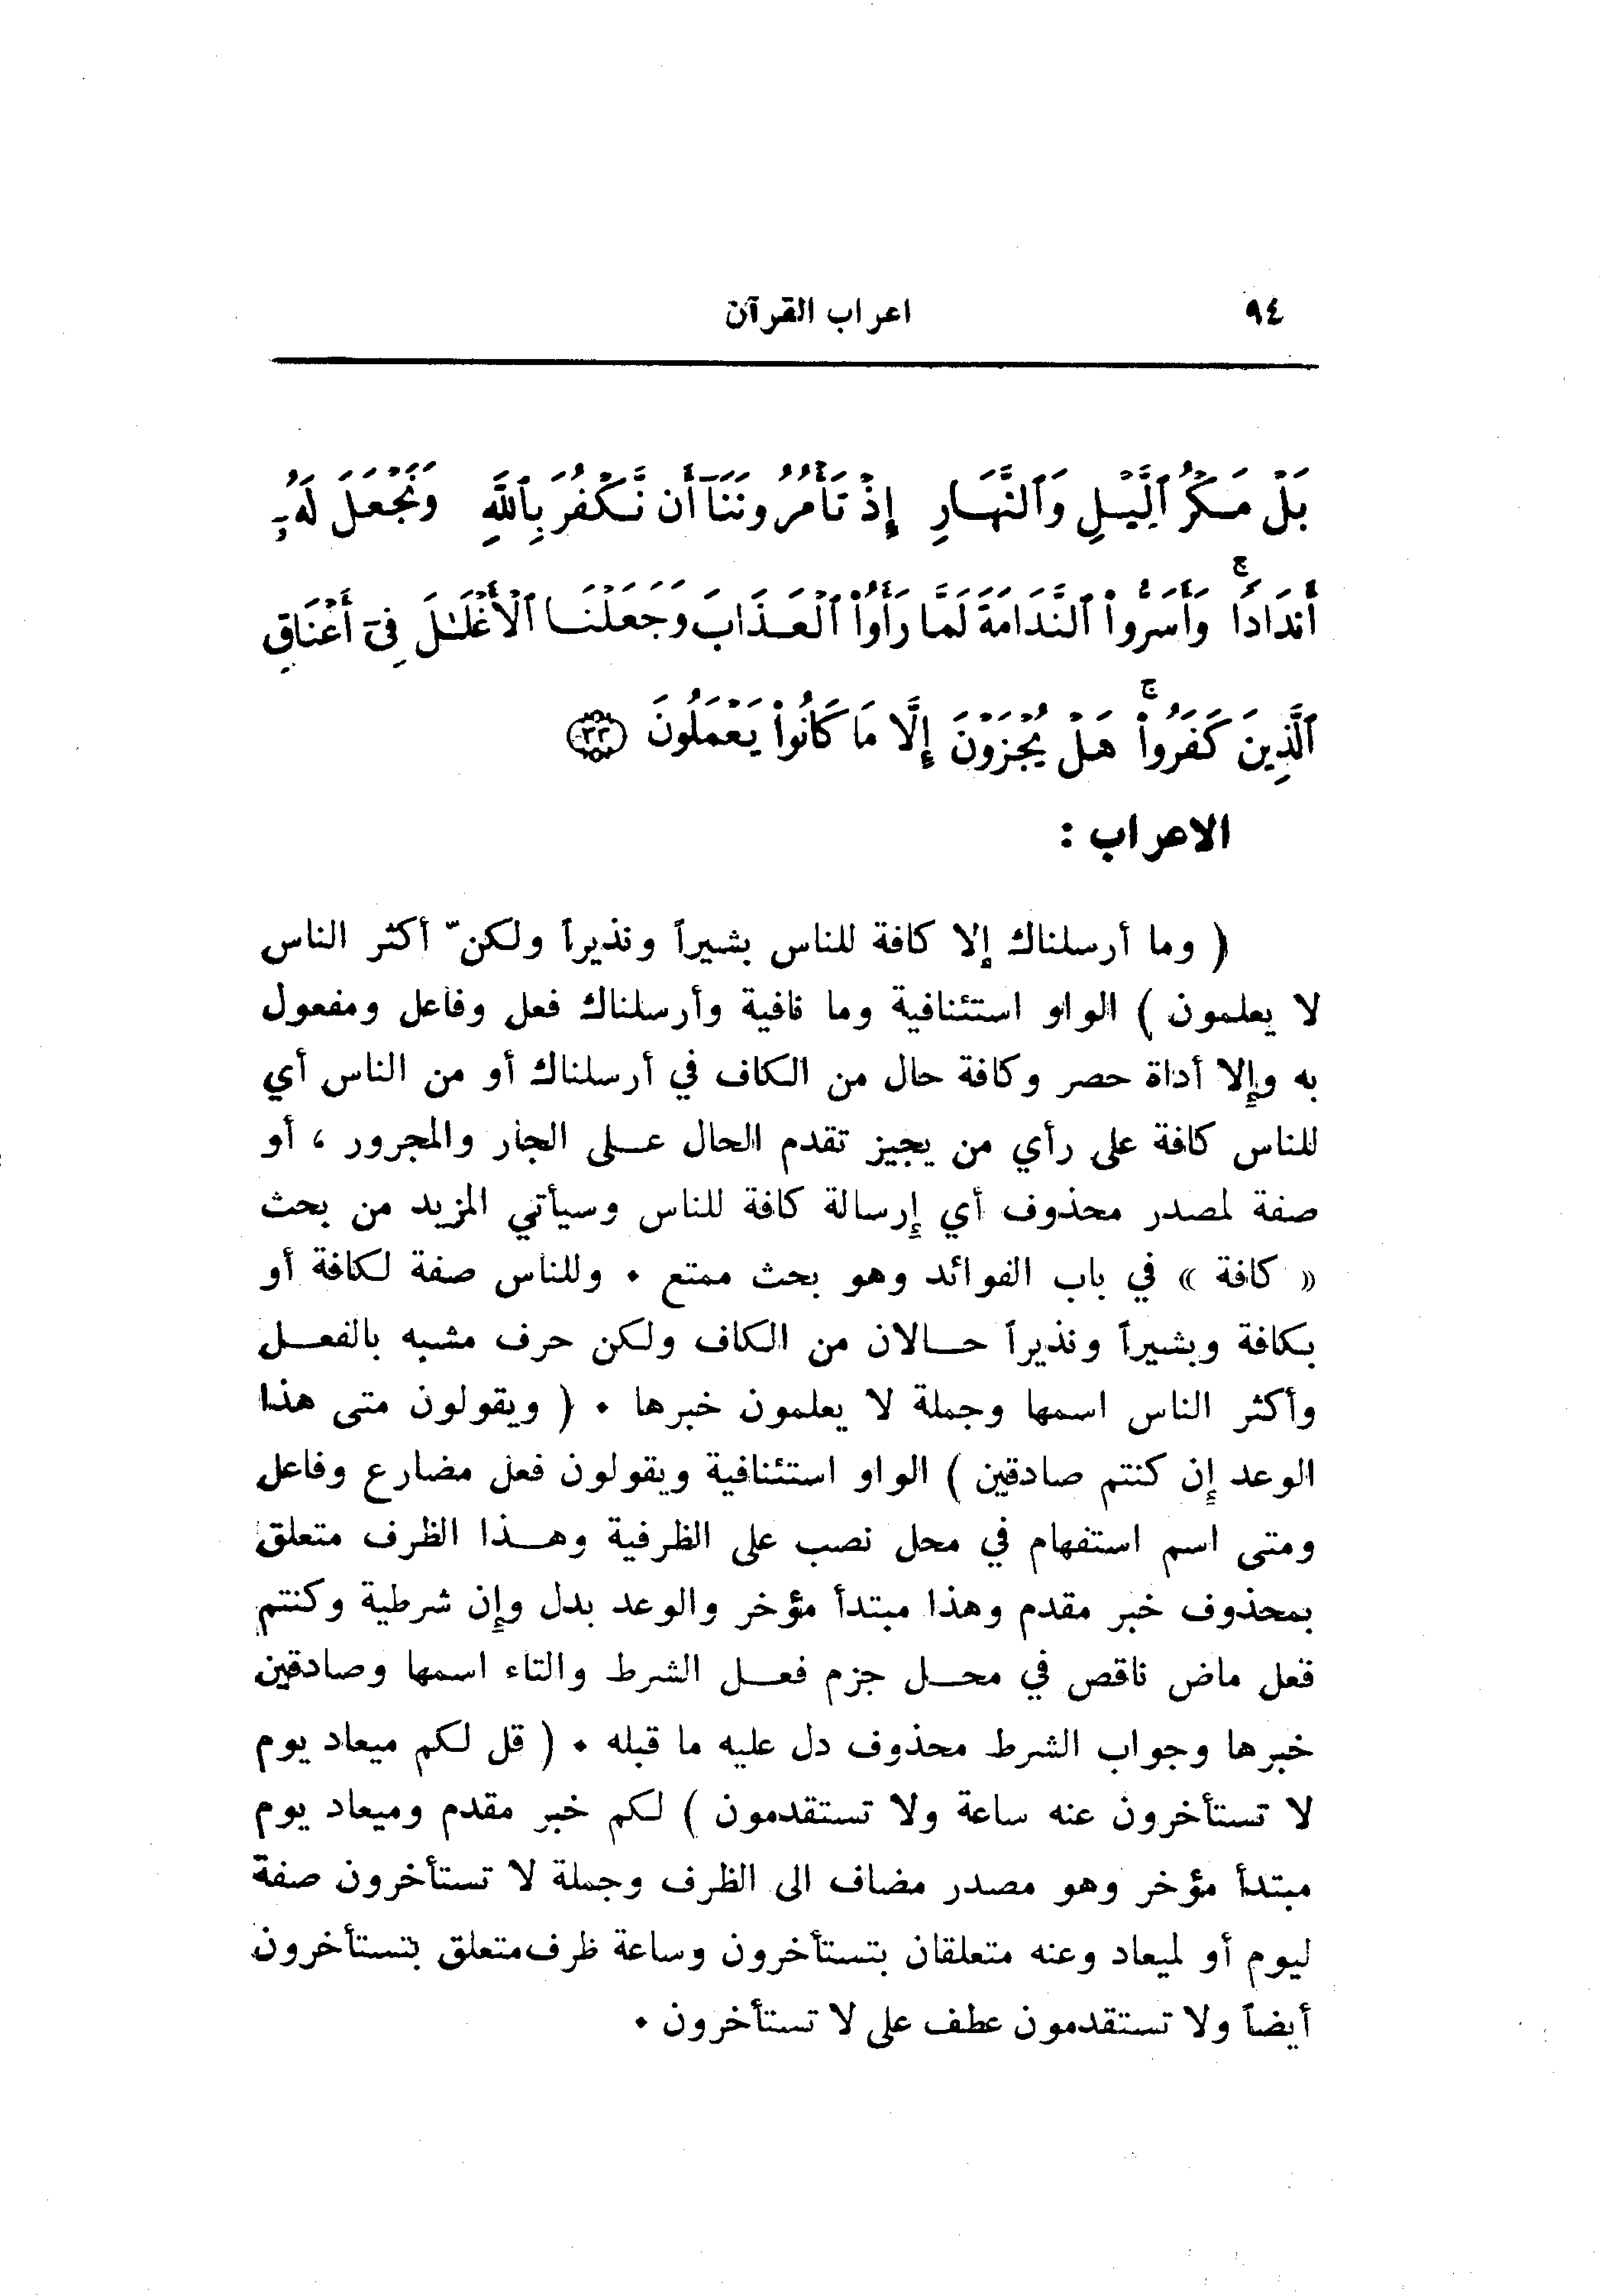 ٩٤ اعراب القرآن
بَلْ مَكْرُ ٱلَّيْلِ وَٱلنَّهَارِ إِذْ تَأْمُرُونَنَآ أَن نَّكْفُرَ بِٱللَّهِ وَنَجْعَلَ لَهُۥٓ
أَندَادًا ۚ وَأَسَرُّوا۟ ٱلنَّدَامَةَ لَمَّا رَأَوُا۟ ٱلْعَذَابَ وَجَعَلْنَا ٱلْأَغْلَٰلَ فِىٓ أَعْنَاقِ
ٱلَّذِينَ كَفَرُوا۟ ۚ هَلْ يُجْزَوْنَ إِلَّا مَا كَانُوا۟ يَعْمَلُونَ ٣٣
الاعراب :
( وما أرسلناك إلا كافة للناس بشيراً ونذيراً ولكنّ أكثر الناس
لا يعلمون ) الواو استئنافية وما نافية وأرسلناك فعل وفاعل ومفعول
به وإلا أداة حصر وكافة حال من الكاف في أرسلناك أو من الناس أي
للناس كافة على رأي من يجيز تقدم الحال عـلى الجار والمجرور ، أو
صفة لمصدر محذوف أي إرسالة كافة للناس وسيأتي المزيد من بحث
« كافة » في باب الفوائد وهو بحث ممتع . وللناس صفة لكافة أو
بكافة وبشيراً ونذيراً حـالان من الكاف ولكن حرف مشبه بالفعـل
وأكثر الناس اسمها وجملة لا يعلمون خبرها . ( ويقولون متى هذا
الوعد إن كنتم صادقين ) الواو استئنافية ويقولون فعل مضارع وفاعل
ومتى اسم استفهام في محل نصب على الظرفية وهـذا الظرف متعلق
بمحذوف خبر مقدم وهذا مبتدأ مؤخر والوعد بدل وإن شرطية وكنتم
فعل ماض ناقص في محـل جزم فعـل الشرط والتاء اسمها وصادقين
خبرها وجواب الشرط محذوف دل عليه ما قبله . ( قل لكم ميعاد يوم
لا تستأخرون عنه ساعة ولا تستقدمون ) لكم خبر مقدم وميعاد يوم
مبتدأ مؤخر وهو مصدر مضاف الى الظرف وجملة لا تستأخرون صفة
ليوم أو لميعاد وعنه متعلقان بتستأخرون وساعة ظرف متعلق بتستأخرون
أيضاً ولا تستقدمون عطف على لا تستأخرون .